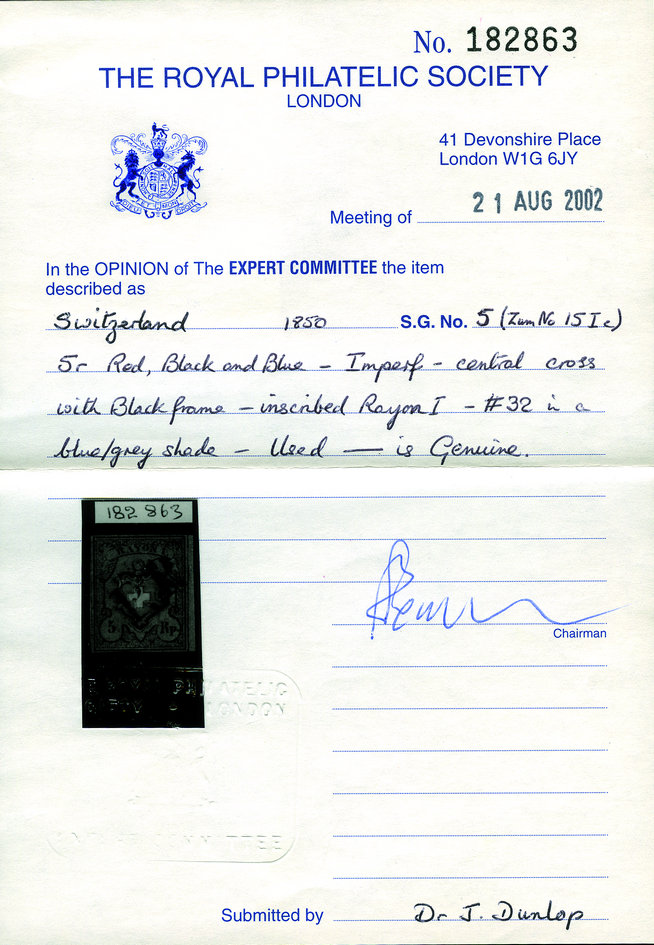 No. 182863
THE ROYAL PHILATELIC SOCIETY
LONDON
41 Devonshire Place
London W1G 6JY
Meeting of 21 AUG 2002
In the OPINION of The EXPERT COMMITTEE the item
described as
Switzerland 1850 S.G. No. 5 (Zum No 15 I c)
5r Red, Black and Blue – Imperf – central cross
with Black frame – inscribed Rayon I – #32 in a
blue/grey shade – Used — is Genuine.
182 863
RAYON I
5 Rp
PHILATELIC
LONDON
COMMITTEE
Chairman
Submitted by Dr J. Dunlop